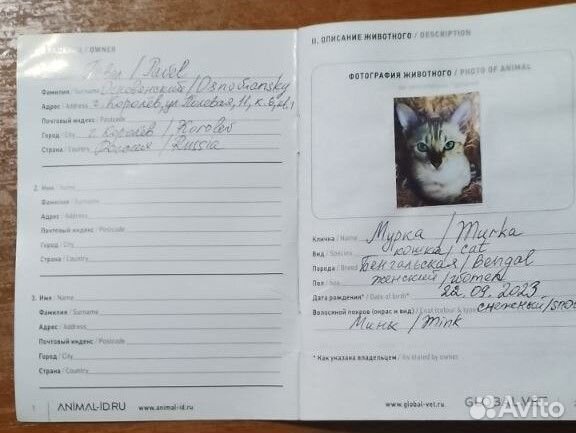 / OWNER
/ Pavel
Фамилия / Surname / Osnoviansky
Адрес / Address г. Королев, ул.
Почтовый индекс / Postcode
Город / City г. Королёв / Korolev
Страна / Country Россия / Russia
2. Имя / Name
Фамилия / Surname
Адрес / Address
Почтовый индекс / Postcode
Город / City
Страна / Country
3. Имя / Name
Фамилия / Surname
Адрес / Address
Почтовый индекс / Postcode
Город / City
Страна / Country
1 ANIMAL-ID.RU www.animal-id.ru
II. ОПИСАНИЕ ЖИВОТНОГО / DESCRIPTION
ФОТОГРАФИЯ ЖИВОТНОГО / PHOTO OF ANIMAL
Кличка / Name Мурка / Murka
Вид / Species кошка / cat
Порода / Breed Бенгальская / Bengal
Пол / Sex женский / women
Дата рождения* / Date of birth* 22.09.2023
Волосяной покров (окрас и вид) / Coat (colour & type) снежный /
Минк / Mink
* Как указана владельцем / As stated by owner
www.global-vet.ru GLOBAL-VET
Avito